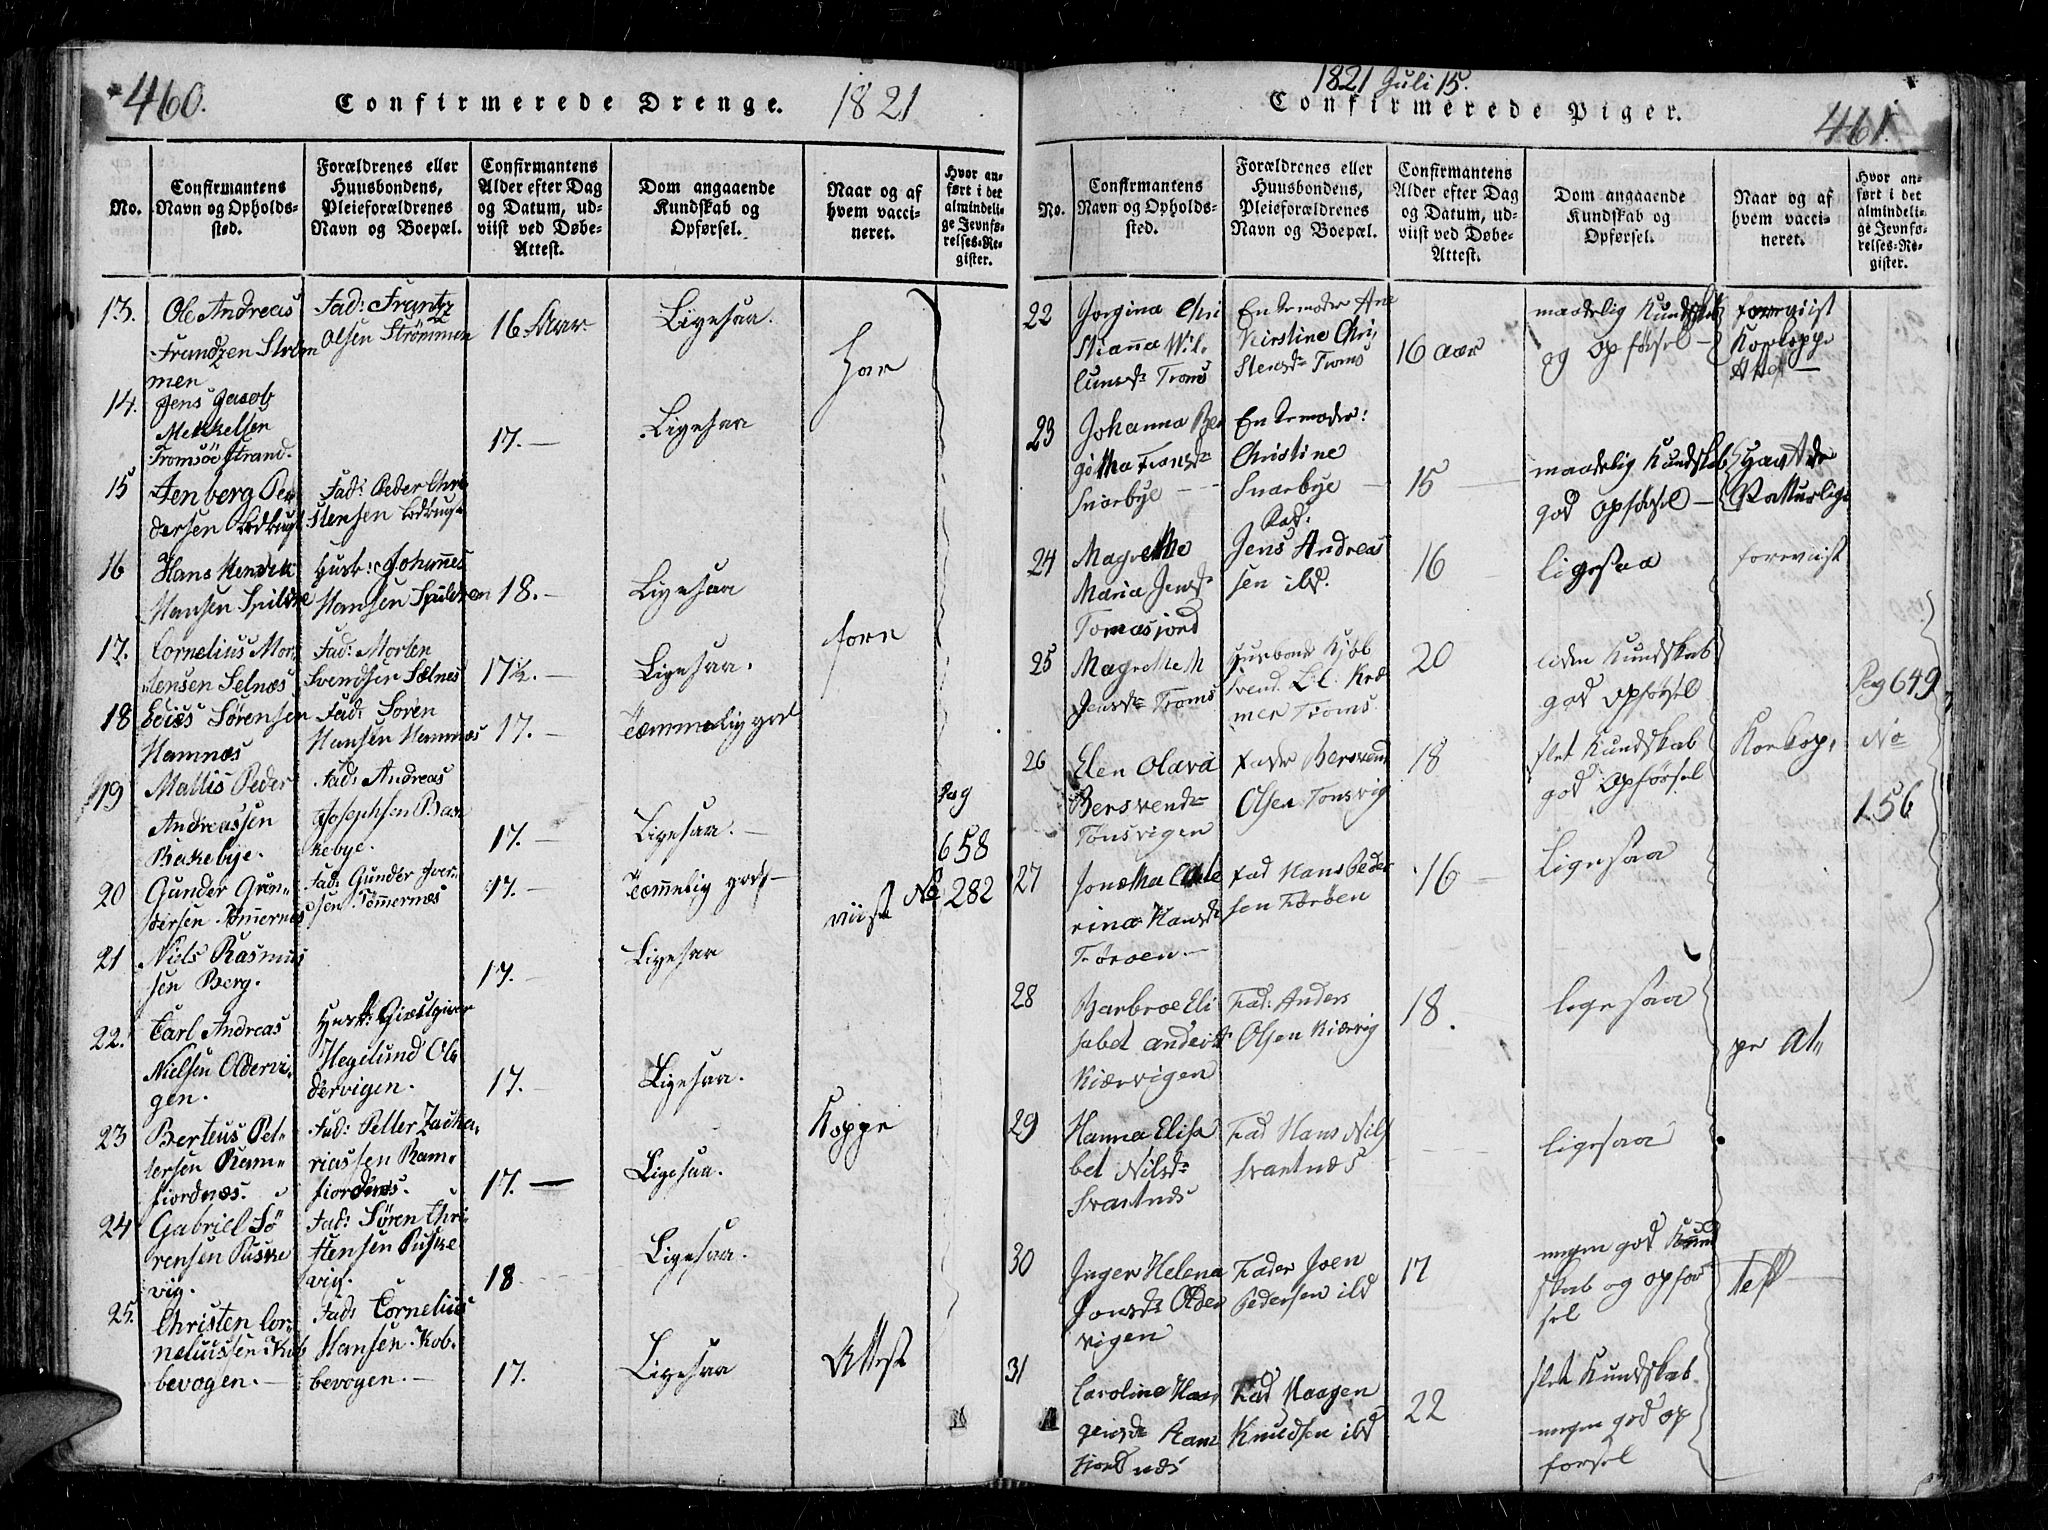 460.
Confirmerede Drenge.
1821
No.
Confirmantens Navn og Opholds-sted.
Forældrenes eller Huusbondens, Pleieforældrenes Navn og Boepæl.
Confirmantens Alder efter Dag og Datum, ud-viist ved Døbe-Attest.
Dom angaaende Kundskab og Opførsel.
Naar og af hvem vacci-neret.
Hvor an-ført i det almindeli-ge Jevnfø-relses-Re-gister.
13.
Ole Andreas
Frandzen Ström
men
Fad: Frantz
Olsen Strömmen
16 Aar
Ligesaa.
har
14.
Jens Jacob
Mekkelsen
Tromsöe Strand.
17. —
Ligesaa
15
Pe
dersen
Fad: Peder Chri
stensen
16
Hans Henrik
Hansen
Husb: Johannes
Hansen
18. —
Ligesaa
17.
Cornelius Mor
tensen Selnæs
Fad: Morten
Svendsen Sælnes
17½. —
Ligesaa.
fore
18
Sörensen
Hamnæs
Fad: Sören
Hansen Hamnæs
17. —
Temmelig god
19
Mattis Peder
Andreassen
Bakebye.
Fad: Andreas
Josephsen Bak
kebye.
17. —
Ligesaa. —
Pag
658
20
Gunder Gun-
dersen Tömmernes
Fad: Gunder Iver-
sen Tömmernæs
17. —
Temmelig god —
viist
No 282
21
Niels Rasmus
sen Berg.
17. —
Ligesaa
22.
Carl Andreas
Nielsen Oldervi-
gen.
Husb: Giæstgiver
Hegelund Ol
dervigen.
17. —
Ligesaa.
23
Berteus Pet-
tersen Ram-
fiordnæs.
Fad: Petter Zacha-
riassen Ram-
fiordnæs.
17. —
Ligesaa.
Koppe
24
Gabriel Sö
rensen Puske
vig.
Fad: Sören Chri-
stensen Puske
vig.
18
Ligesaa.
25.
Christen Cor-
neliussen Kob
bevogen. —
Fad: Cornelius
Hansen Kob-
bevogen. —
17.
Ligesaa
Attest
1821 Juli 15.
Confirmerede Piger.
461.
No.
Confirmantens Navn og Opholds-sted.
Forældrenes eller Huusbondens, Pleieforældrenes Navn og Boepæl.
Confirmantens Alder efter Dag og Datum, ud-viist ved Døbe-Attest.
Dom angaaende Kundskab og Opførsel.
Naar og af hvem vacci-neret.
Hvor an-ført i det almindeli-ge Jevnfø-relses-Re-gister.
22
Jorgina Chri
stianna Wil
lumsd Troms
Enkemoder Ane
Kirstine Chri
stensd Troms
16 aar
maadelig Kundskab
og Opförsel —
foreviist
Kokoppe
Att —
23
Johanna Ber
githa
Snarbye
Enkemoder:
Christine
Snarbye
15
maadelig Kundskab
god Opförsel —
Havt de
Natturlige
24
Magrethe
Maria Jensd
Tomasjord
Fad:
Jens Andreas
sen ibd.
16
ligesaa
foreviist
25
Magrethe M
Jensd Troms
Husbond Kjöb
svend L: Kræ
mer Troms
20
liden Kundskab
god Opförsel
Pag 649
26
Elen Olava
Bersvend
Tönsvigen
Fader Bersvend
Olsen Tonsvig
18
slet Kundskab
god Opförsel
Kokop,
No
156
27
Jonetha Cathe
rina Hansd
Föroen —
Fad Hans Peder
sen Færöen
16
ligesaa
28
Barbroe Eli
sabet
Kiærvigen
Fad: Anders
Olsen Kiærvig
18.
ligesaa
pe At,,
29
Hanna Elisa
bet Nilsd
Svartnæs
Fad Hans Nils
Svartnæs
ligesaa
30
Inger Helena
Jonsd Older
vigen
Fader Joen
Pedersen ibd
17
megen god Kund
skab og opför
sel
test
31
Caroline Haa
gensd Ram
fiordnæs
Fad Haagen
Knudsen ibd
22
slet Kundskab
megen god op
försel